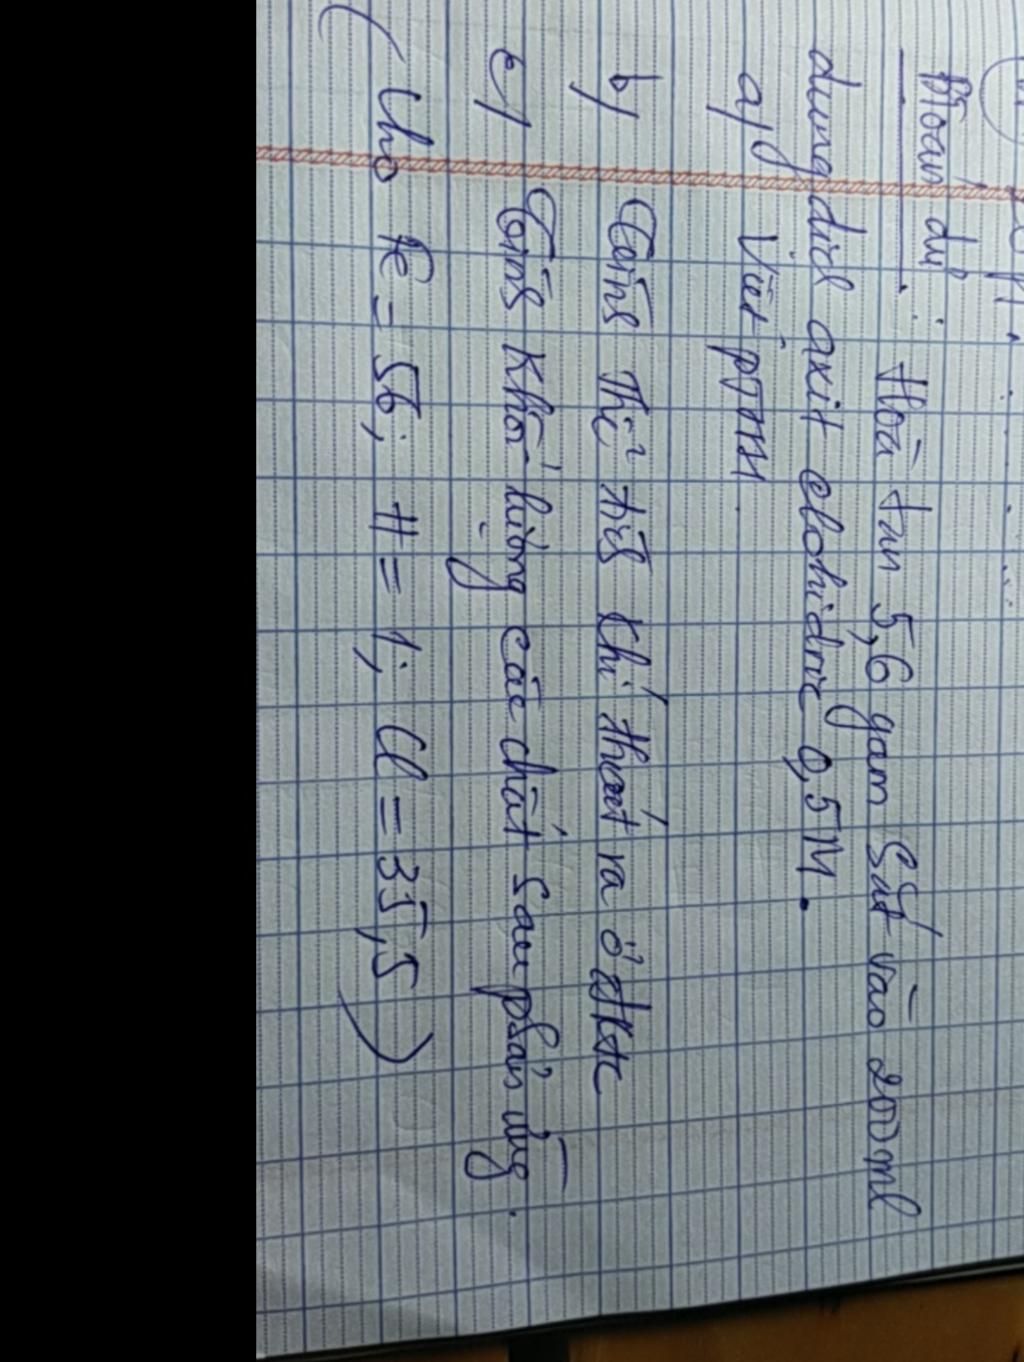 BToán dư: Hoà tan 5,6 gam Sắt vào 200ml
dung dịch axit clohidric 0,5M.
a/ Viết PTHH
b/ Tính Thể tích khí thoát ra ở đktc
c/ Tính khối lượng các chất sau phản ứng.
(Cho Fe = 56; H = 1; Cl = 35,5)